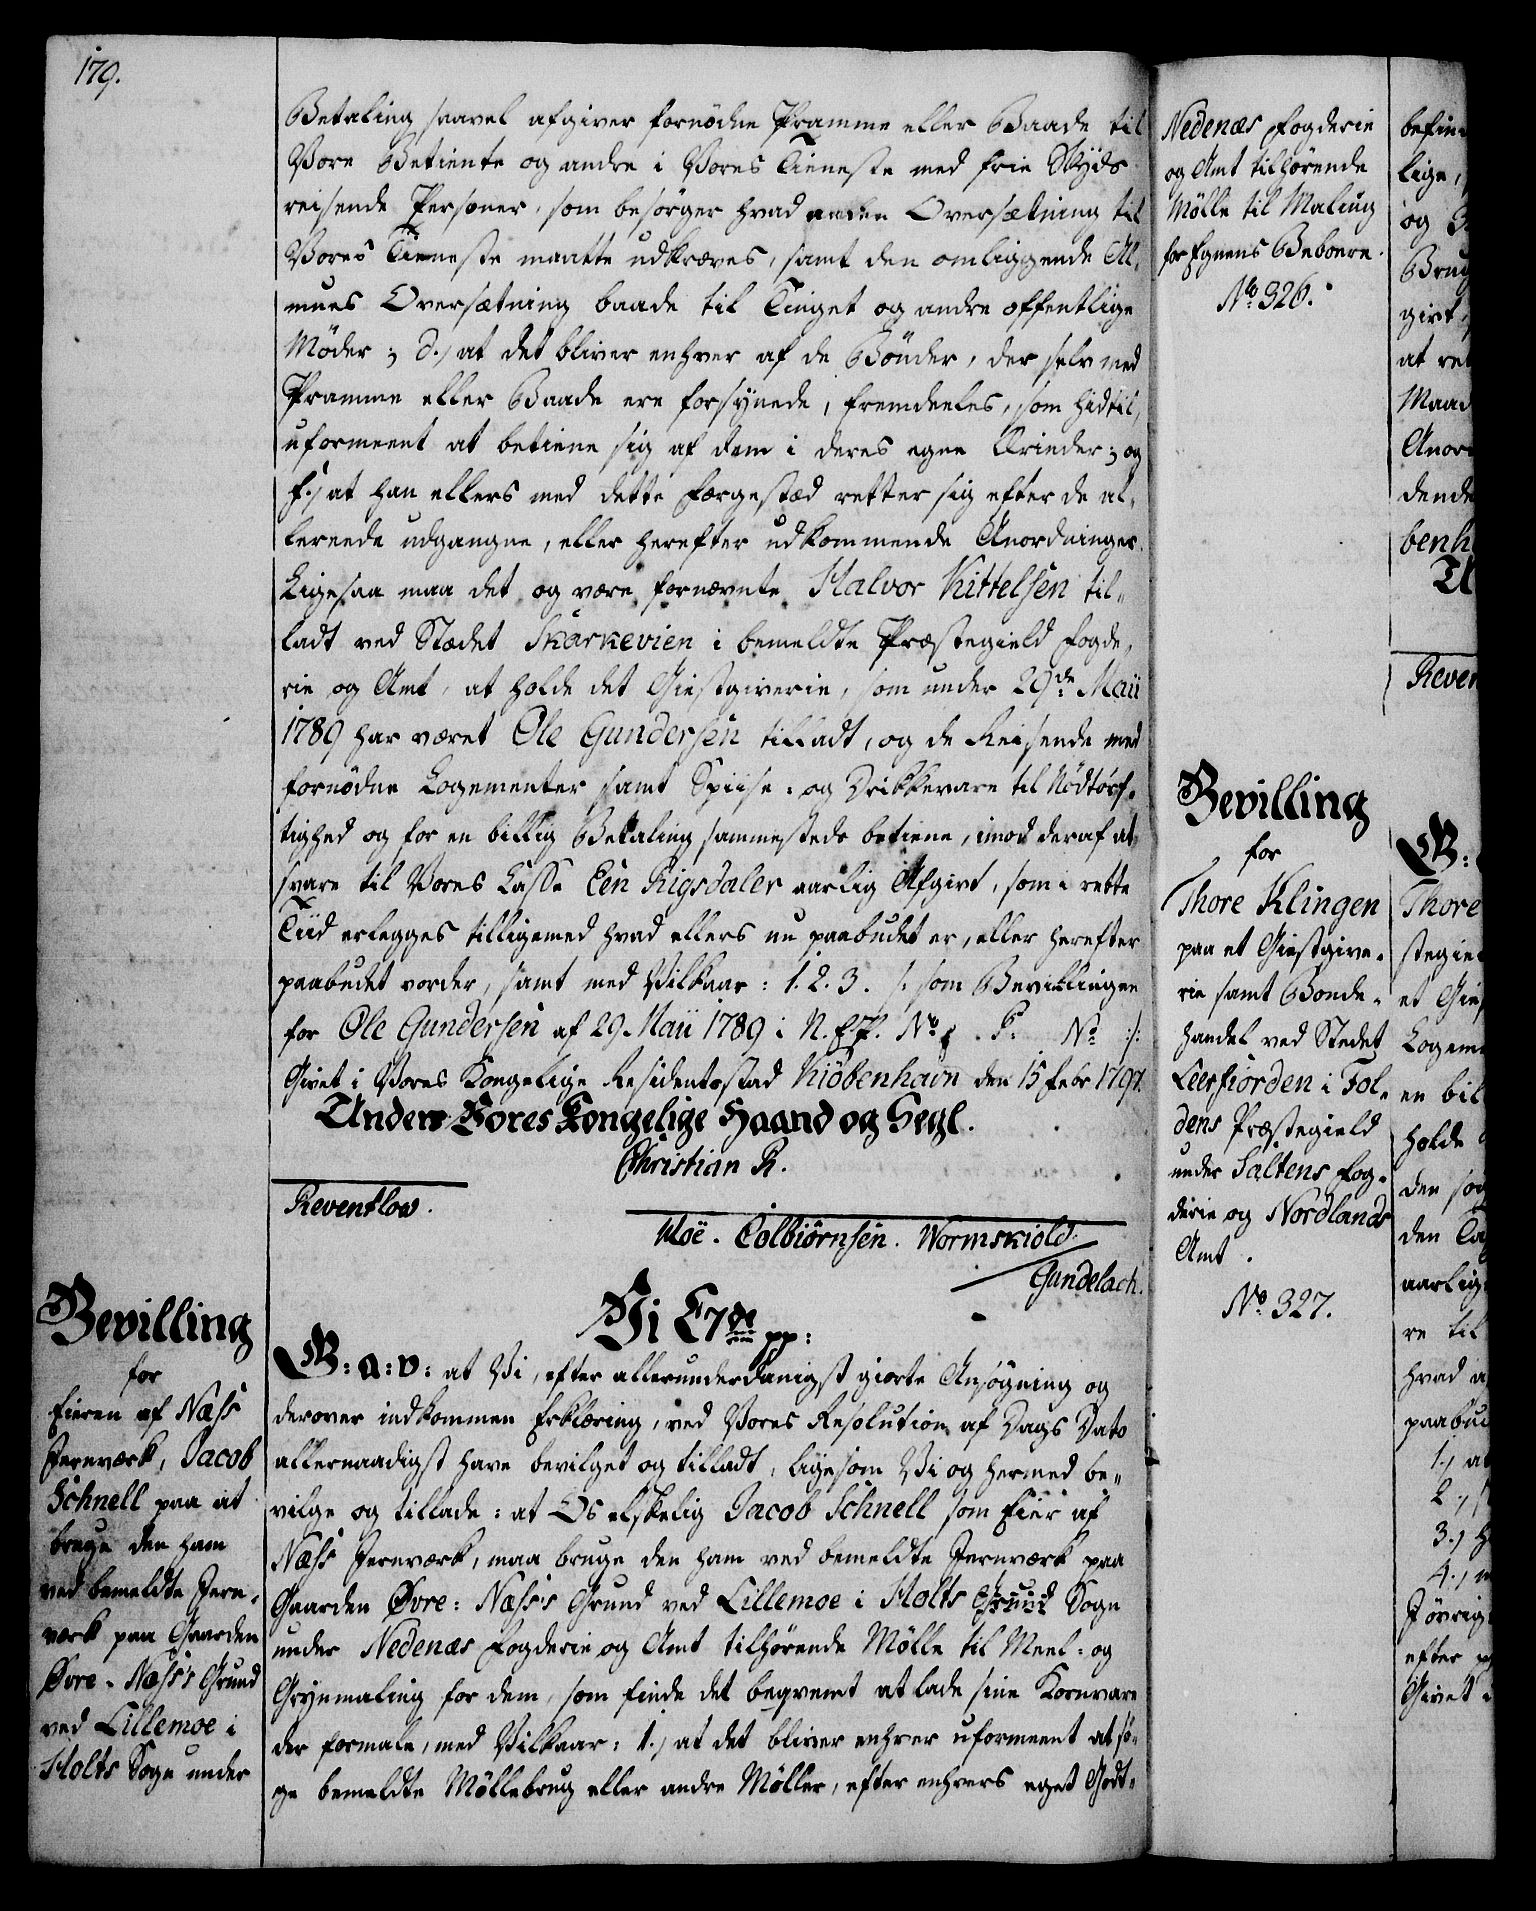 179.
Betaling saavel afgiver fornødne Pramme eller Baade til
Vore Betiente og andre i Vores Tieneste med frie Skyds
reisende Personer, som besørger hvad anden Oversætning til
Vores Tieneste maatte udkræves, samt den omliggende Al-
mues Oversætning baade til Tinget og andre offentlige
Møder; d.) at det bliver enhver af de Bønder, der selv med
Pramme eller Baade ere forsynede, fremdeeles, som hidtil,
uformeent at betiene sig af dem i deres egne Ærinder; og
f.) at han ellers med dette Færgestæd retter sig efter de al-
lereede udgangne, eller herefter udkommende Anordninger.
Ligesaa maa det og være fornævnte Halvor Kittelsen til-
ladt ved Stædet Skarkevien i bemeldte Præstegield Fogde-
rie og Amt, at holde det Giestgiverie, som under 29de Maii
1789 har været Ole Gundersen tilladt, og de Reisende med
fornødne Logementer samt Spiise- og Drikkevare til Nødtørf-
tighed og for en billig Betaling sammesteds betiene, imod deraf at
svare til Vores Casse Een Rigsdaler aarlig Afgivt, som i rette
Tiid erlegges tilligemed hvad ellers nu paabudet er, eller herefter
paabudet vorder, samt med Vilkaar: 1. 2. 3. /: som Bevillingen
for Ole Gundersen af 29. Maii 1789 i N. F. P. No . P. No :/:
Givet i Vores Kongelige Residentzstad Kiøbenhavn den 15 Febr 1797.
Under Vores Kongelige Haand og Segl.
Christian R.
Reventlow.
Moë. Colbiørnsen. Wormskiold.
Gundelach.
Bevilling
for
Eieren af Næss
Jernværk, Jacob
Schnell paa at
bruge den ham
ved bemeldte Jern-
værk paa Gaarden
Øvre-Næss's Grund
ved Lillemoe i
Holts Sogn under
Vi C 7de pp:
G: a: v: at Vi, efter allerunderdanigst giorte Ansøgning og
derover indkommen Erklæring, ved Vores Resolution af Dags Dato
allernaadigst have bevilget og tilladt, ligesom Vi og hermed be-
vilge og tillade: at Os elskelig Jacob Schnell som Eier af
Næss Jernværk, maa bruge den ham ved bemeldte Jernværk paa
Gaarden Øvre-Næss's Grund ved Lillemoe i Holts Grund Sogn
under Nedenæs Fogderie og Amt tilhørende Mølle til Meel- og
Grynmaling for dem, som finde det beqvemt at lade sine Kornvare
der formale, med Vilkaar: 1.) at det bliver enhver uformeent at sø-
ge bemeldte Møllebrug eller andre Møller, efter enhvers eget Godt-
Nedenæs Fogderie
og Amt tilhørende
Mølle til Maling
for Egnens Beboere.
No 326.
Bevilling
for
Thore Klingen
paa et Giestgive-
rie samt Bonde-
handel ved Stedet
Leerfiorden i Fol-
dens Præstegield
under Saltens Fog-
derie og Nordlands
Amt.
No 327.
befin
lige,
og
Brug
givt
at ret
Maad
Anor
dende
benh
U
Reven
G:
Thore
stegiel
et Gie
Logeme
en bil
holde
den sog
den
aarlig
re til
hvad a
paabud
1.) at
2.)
3.) h
4.) m
Jøvrig
efter
Givet